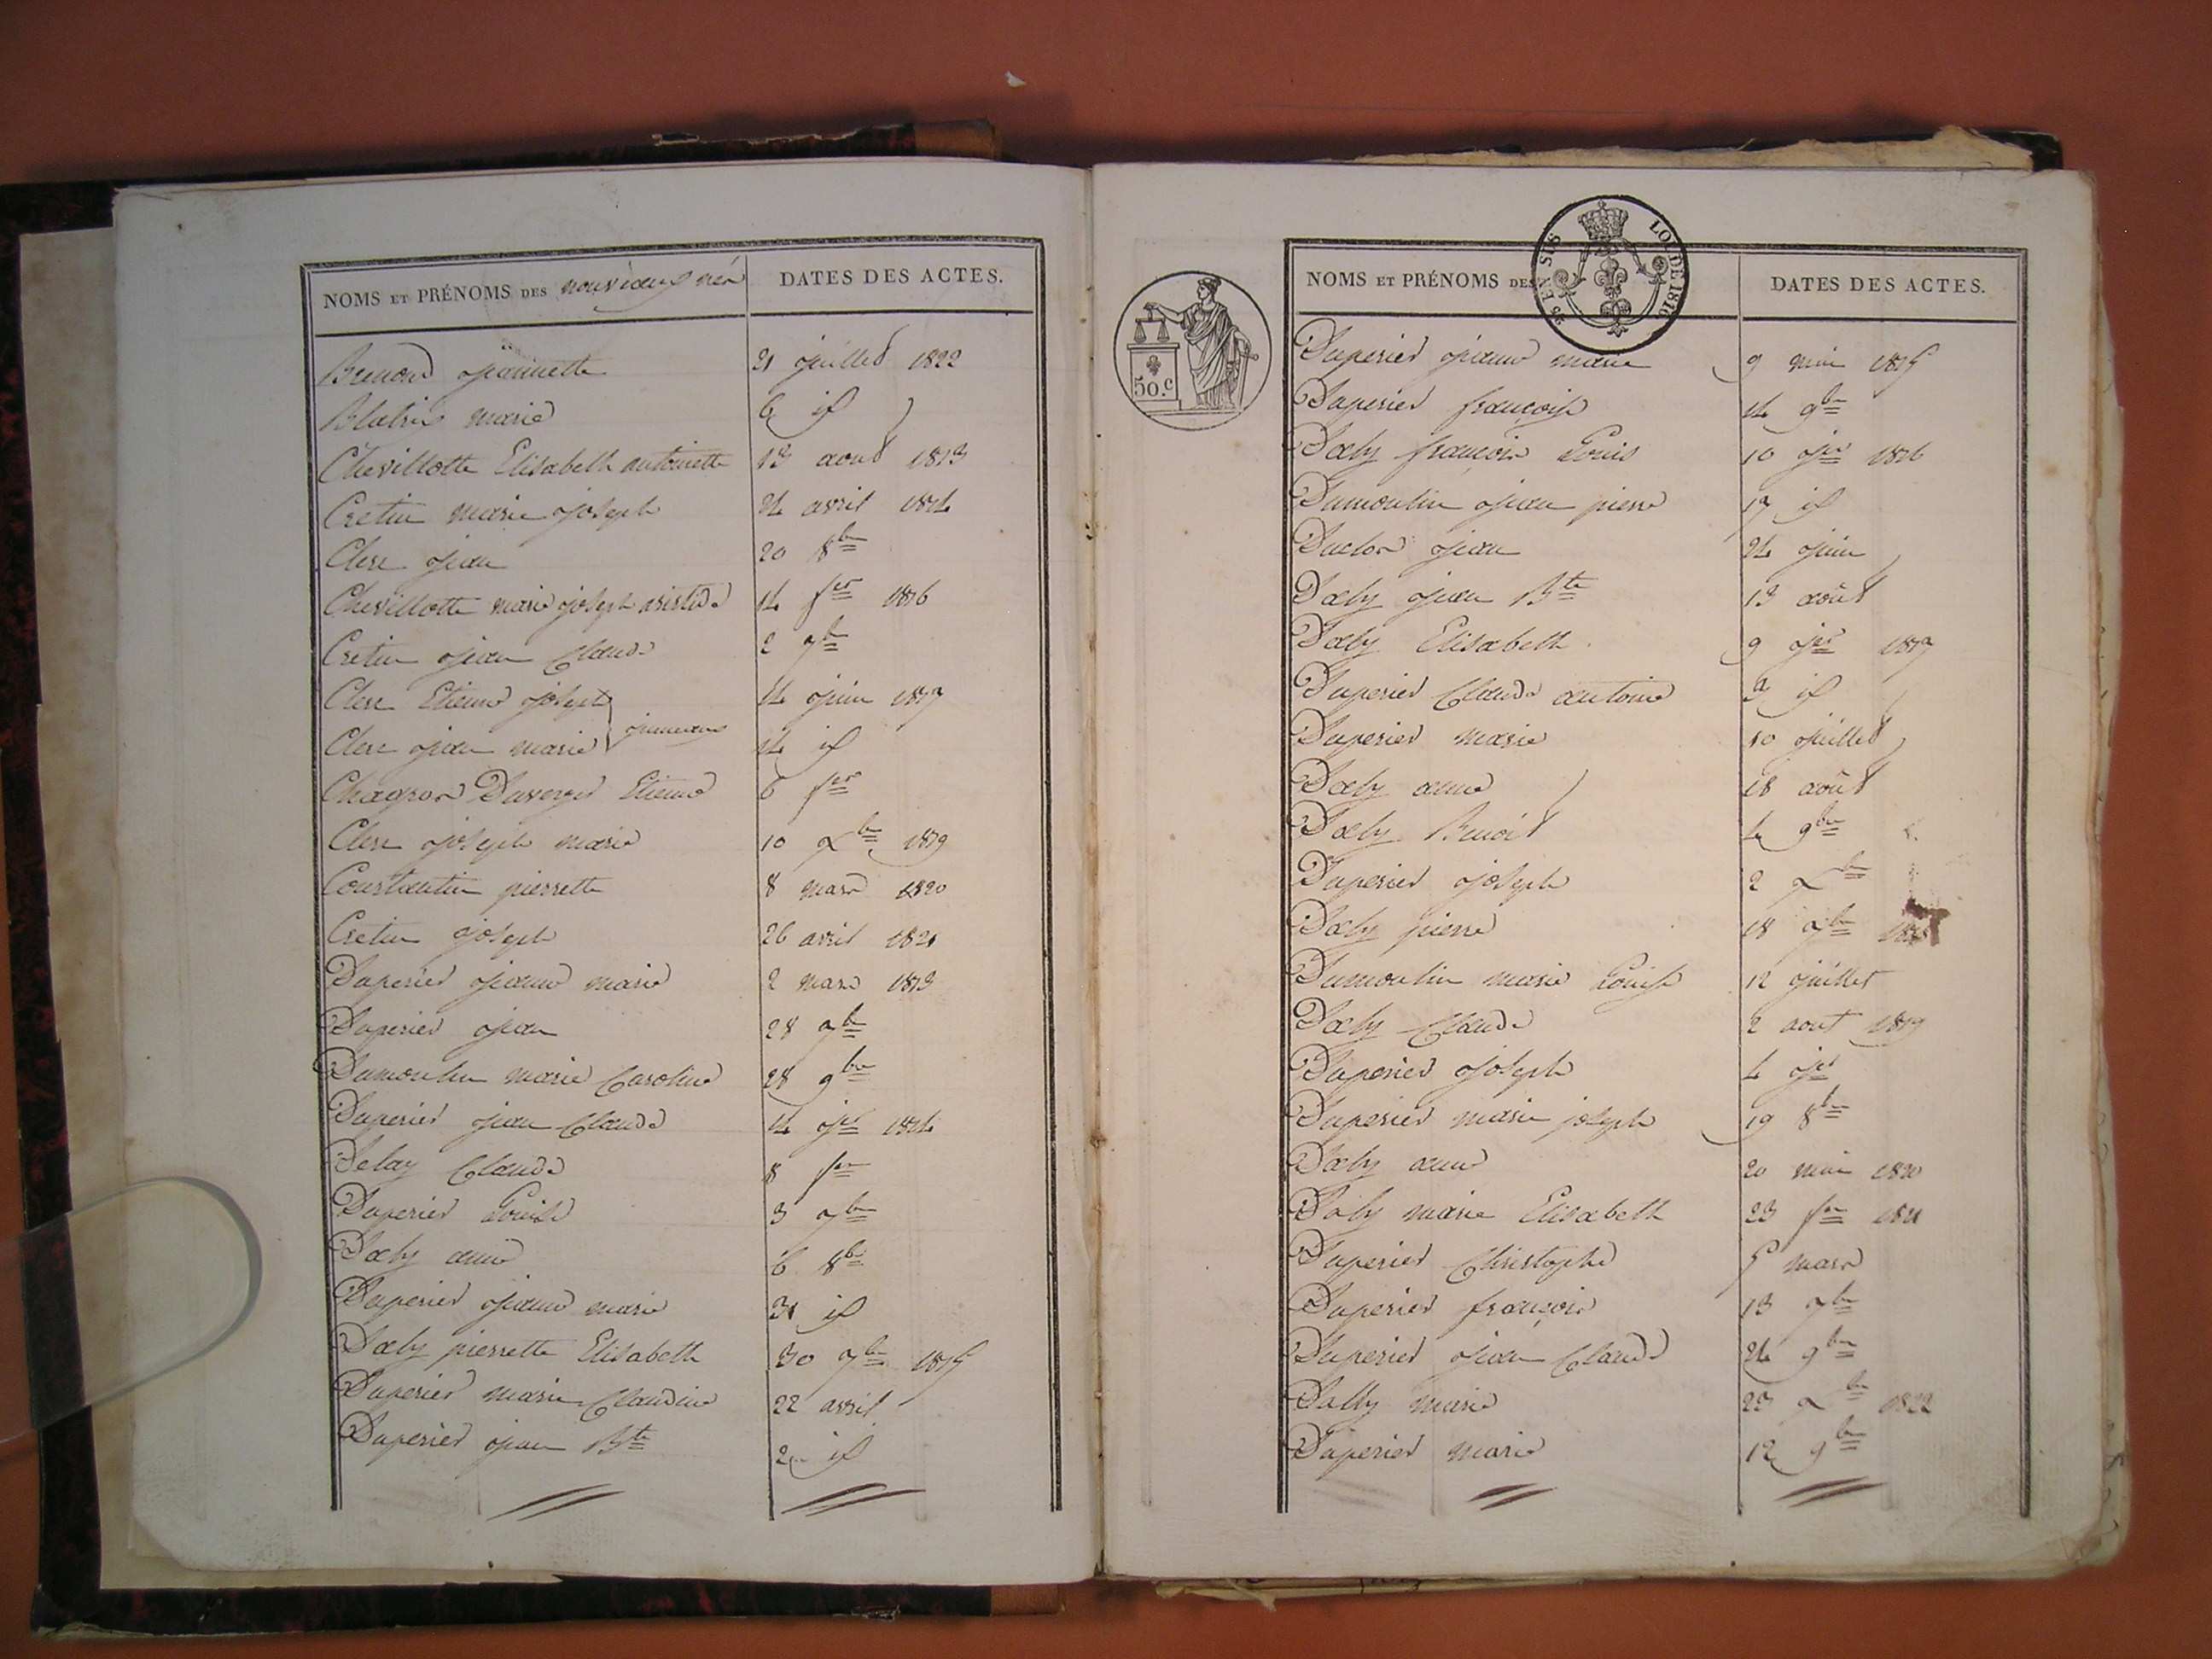 NOMS ET PRÉNOMS DES nouveaux nés DATES DES ACTES.
Bunod jeannette 21 juillet 1822
Blatrix marie 6 id
Chevillotte Elisabeth antoinette 13 aout 1813
Cretin marie joseph 24 avril 1814
Clerc jean 20 8bre
Chevillotte marie joseph aristide 14 fer 1816
Cretin jean Claude 2 7bre
Clerc Etienne joseph 14 juin 1817
Clerc jean marie jumeaux 14 id
Chagron Duverger Etienne 6 fer
Clerc joseph marie 10 Xbre 1819
Constantin pierrette 8 mars 1820
Cretin joseph 26 avril 1821
Duperier jeanne marie 2 mars 1813
Duperier jean 28 7bre
Dumoulin marie Caroline 28 9bre
Duperier jean Claude 14 jer 1814
Delay Claude 8 fer
Duperier Louise 3 7bre
Dæby anne 6 8bre
Duperier jeanne marie 31 id
Dæby pierrette Elisabeth 30 7bre 1815
Duperier marie Claudine 22 avril
Duperier jean Bte id
50.c
EN SUS LOI DE 1816
NOMS ET PRÉNOMS DES DATES DES ACTES.
Duperier jeanne marie 9 mai 1815
Duperier françoise 14 9bre
Dæby françois Louis 10 jer 1816
Dumoulin jean pierre 17 id
Duclos jean 24 juin
Dæby jean Bte 13 août
Dæby Elisabeth 9 jer 1817
Duperier Claude antoine id
Duperier marie 10 juillet
Dæby anne 18 août
Dæby Benoit 4 9bre
Duperier joseph 2 Xbre
Dæby pierre 18 7bre
Dumoulin marie Louise 12 juillet
Dæby Claude 2 aout 1819
Duperier joseph 4 jer
Duperier marie joseph 19 8bre
Dæby anne 20 mai 1820
Daby marie Elisabeth 23 fer 1821
Duperier Christophe 5 mars
Duperier françois 13 7bre
Duperier jean Claude 24 9bre
Dalby marie 23 Xbre 1822
Duperier marie 12 9bre